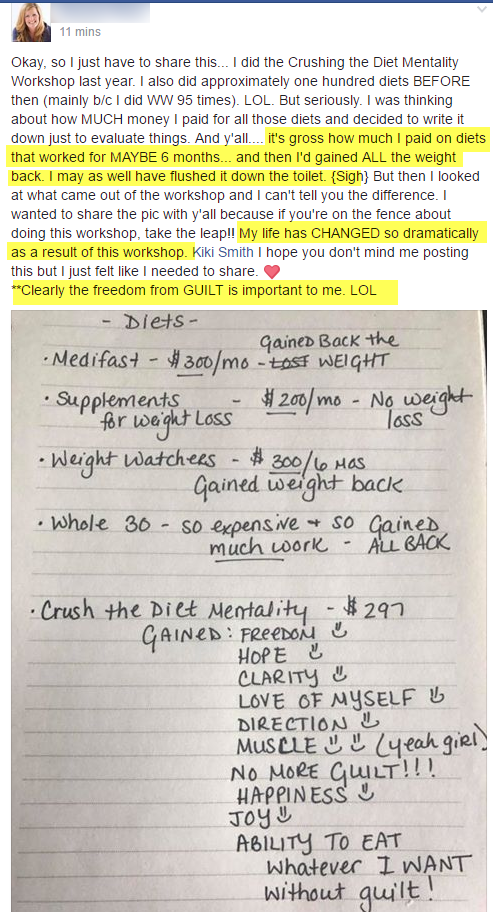 11 mins
Okay, so I just have to share this... I did the Crushing the Diet Mentality
Workshop last year. I also did approximately one hundred diets BEFORE
then (mainly b/c I did WW 95 times). LOL. But seriously. I was thinking
about how MUCH money I paid for all those diets and decided to write it
down just to evaluate things. And y'all.... it's gross how much I paid on diets
that worked for MAYBE 6 months... and then I'd gained ALL the weight
back. I may as well have flushed it down the toilet. {Sigh} But then I looked
at what came out of the workshop and I can't tell you the difference. I
wanted to share the pic with y'all because if you're on the fence about
doing this workshop, take the leap!! My life has CHANGED so dramatically
as a result of this workshop. Kiki Smith I hope you don't mind me posting
this but I just felt like I needed to share. ❤
**Clearly the freedom from GUILT is important to me. LOL
- Diets -
Gained Back the
• Medifast - $300/mo - LOST WEIGHT
• Supplements - $200/mo - No weight
for weight Loss loss
• Weight Watchers - $300/6 mos
Gained weight back
• Whole 30 - so expensive + so Gained
much work - ALL BACK
• Crush the Diet Mentality - $297
GAINED: FREEDOM
HOPE
CLARITY
LOVE OF MYSELF
DIRECTION
MUSCLE (yeah girl)
NO MORE GUILT!!!
HAPPINESS
JOY
ABILITY TO EAT
Whatever I WANT
Without guilt!